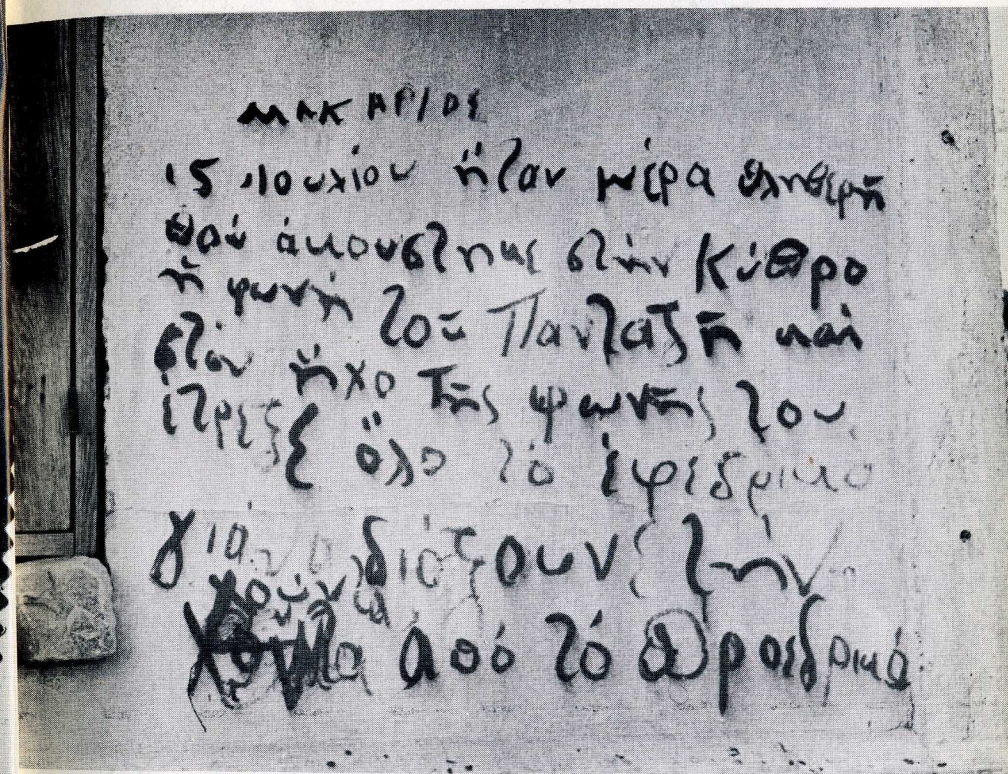 ΜΑΚΑΡΙΟΣ
15 Ἰουλίου ἤταν μέρα θλιβερή
ποὺ ἀκούστηκε στὴν Κύπρο
ἡ φωνὴ τοῦ Πανταζῆ καὶ
στὸν ἦχο τῆς φωνῆς του
ἔτρεξε ὅλο τὸ ἐφεδρικο
γιὰ νὰ διόξουν τὴν
χούντα
ἀπὸ τὸ προεδρικό